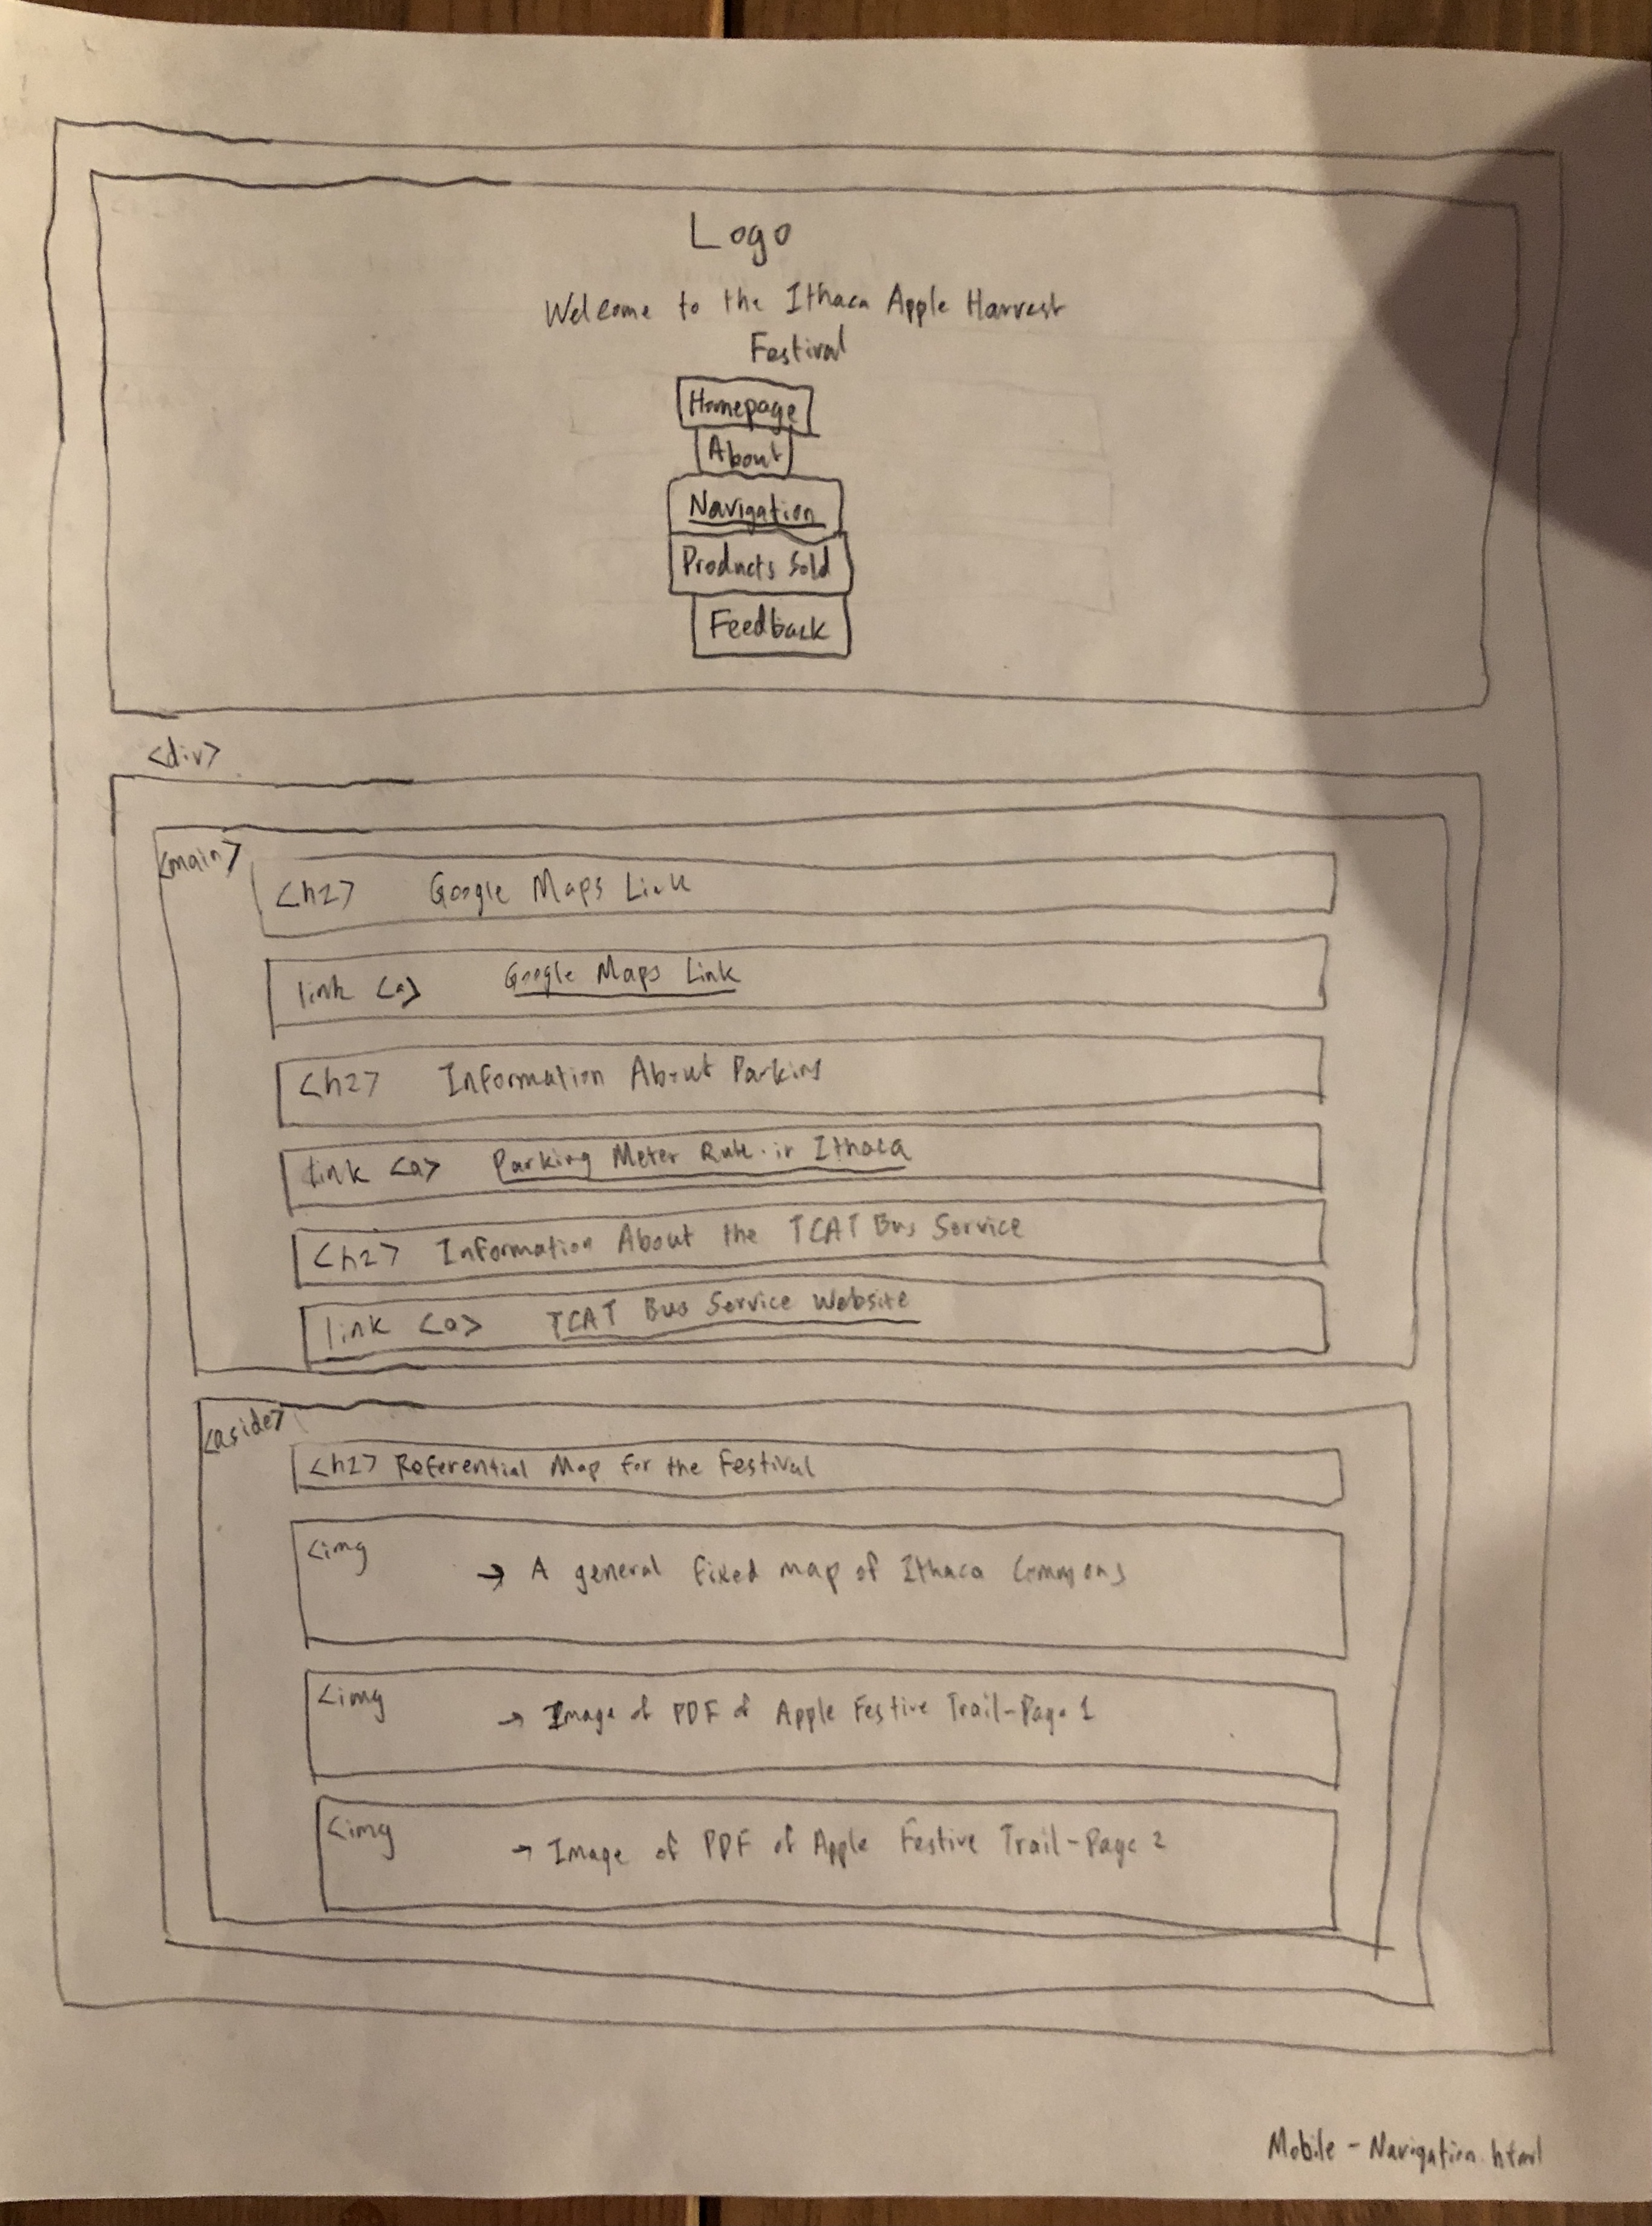 Logo
Welcome to the Ithaca Apple Harvest
Festival
Homepage
About
Navigation
Products Sold
Feedback
<div>
<main>
<h2> Google Maps Link
link <a> Google Maps Link
<h2> Information About Parking
link <a> Parking Meter Rate in Ithaca
<h2> Information About the TCAT Bus Service
link <a> TCAT Bus Service Website
<aside>
<h2> Referential Map for the Festival
<img → A general fixed map of Ithaca Commons
<img → Image of PDF of Apple Festive Trail-Page 1
<img → Image of PDF of Apple Festive Trail-Page 2
Mobile - Navigation.html